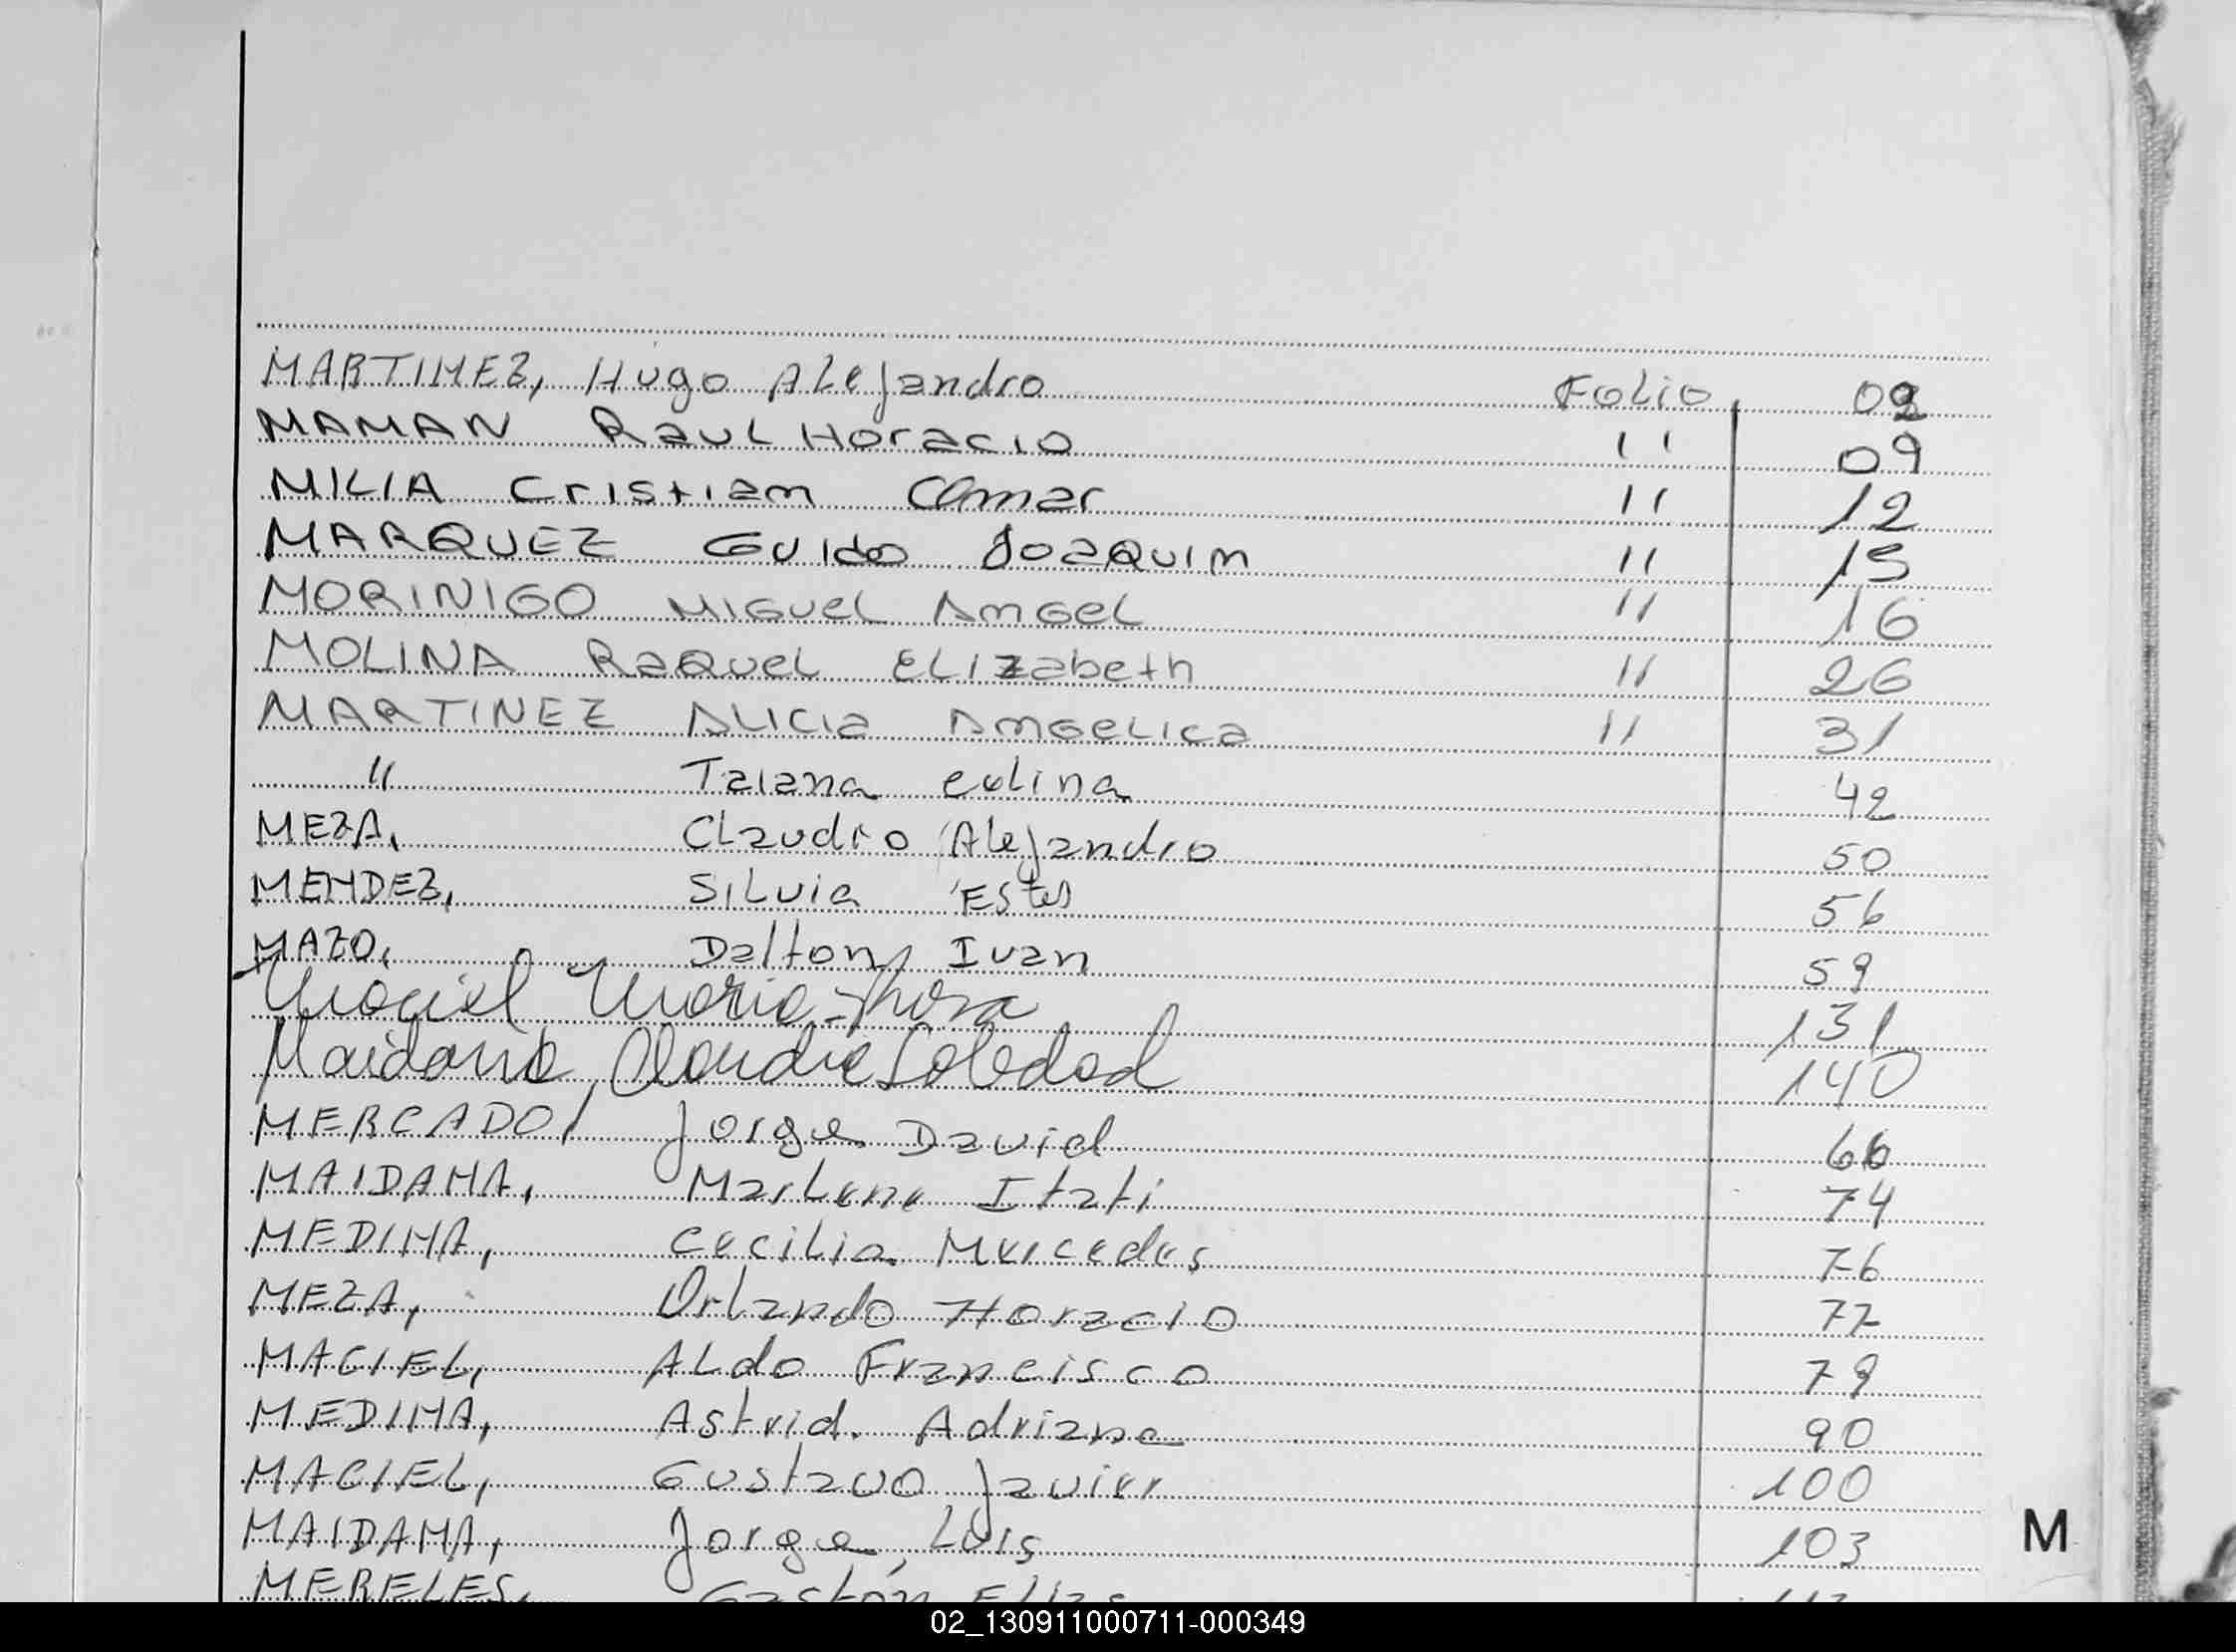 MARTINEZ, Hugo Alejandro Folio 02
MAMAN Raul Horacio " 09
MILIA Cristian Omar " 12
MARQUEZ Guido Joaquin " 15
MORINIGO Miguel Angel " 16
MOLINA Raquel Elizabeth " 26
MARTINEZ Alicia Angelica " 31
" Taiana 42
MEZA, Claudio Alejandro 50
MENDEZ, Silvia Ester 56
MAZO, Dalton Ivan 59
Maciel Maria Rosa 131
Maidana, Claudia Soledad 140
MERCADO, Jorge David 66
MAIDANA, Marlene Itati 74
MEDINA, Cecilia Mercedes 76
MEZA, Orlando Horacio 77
MACIEL, Aldo Francisco 79
MEDINA, Astrid. Adriana 90
MACIEL, Gustavo Javier 100
MAIDANA, Jorge, Luis 103
MERELES, Gastón Elias
M
02_130911000711-000349